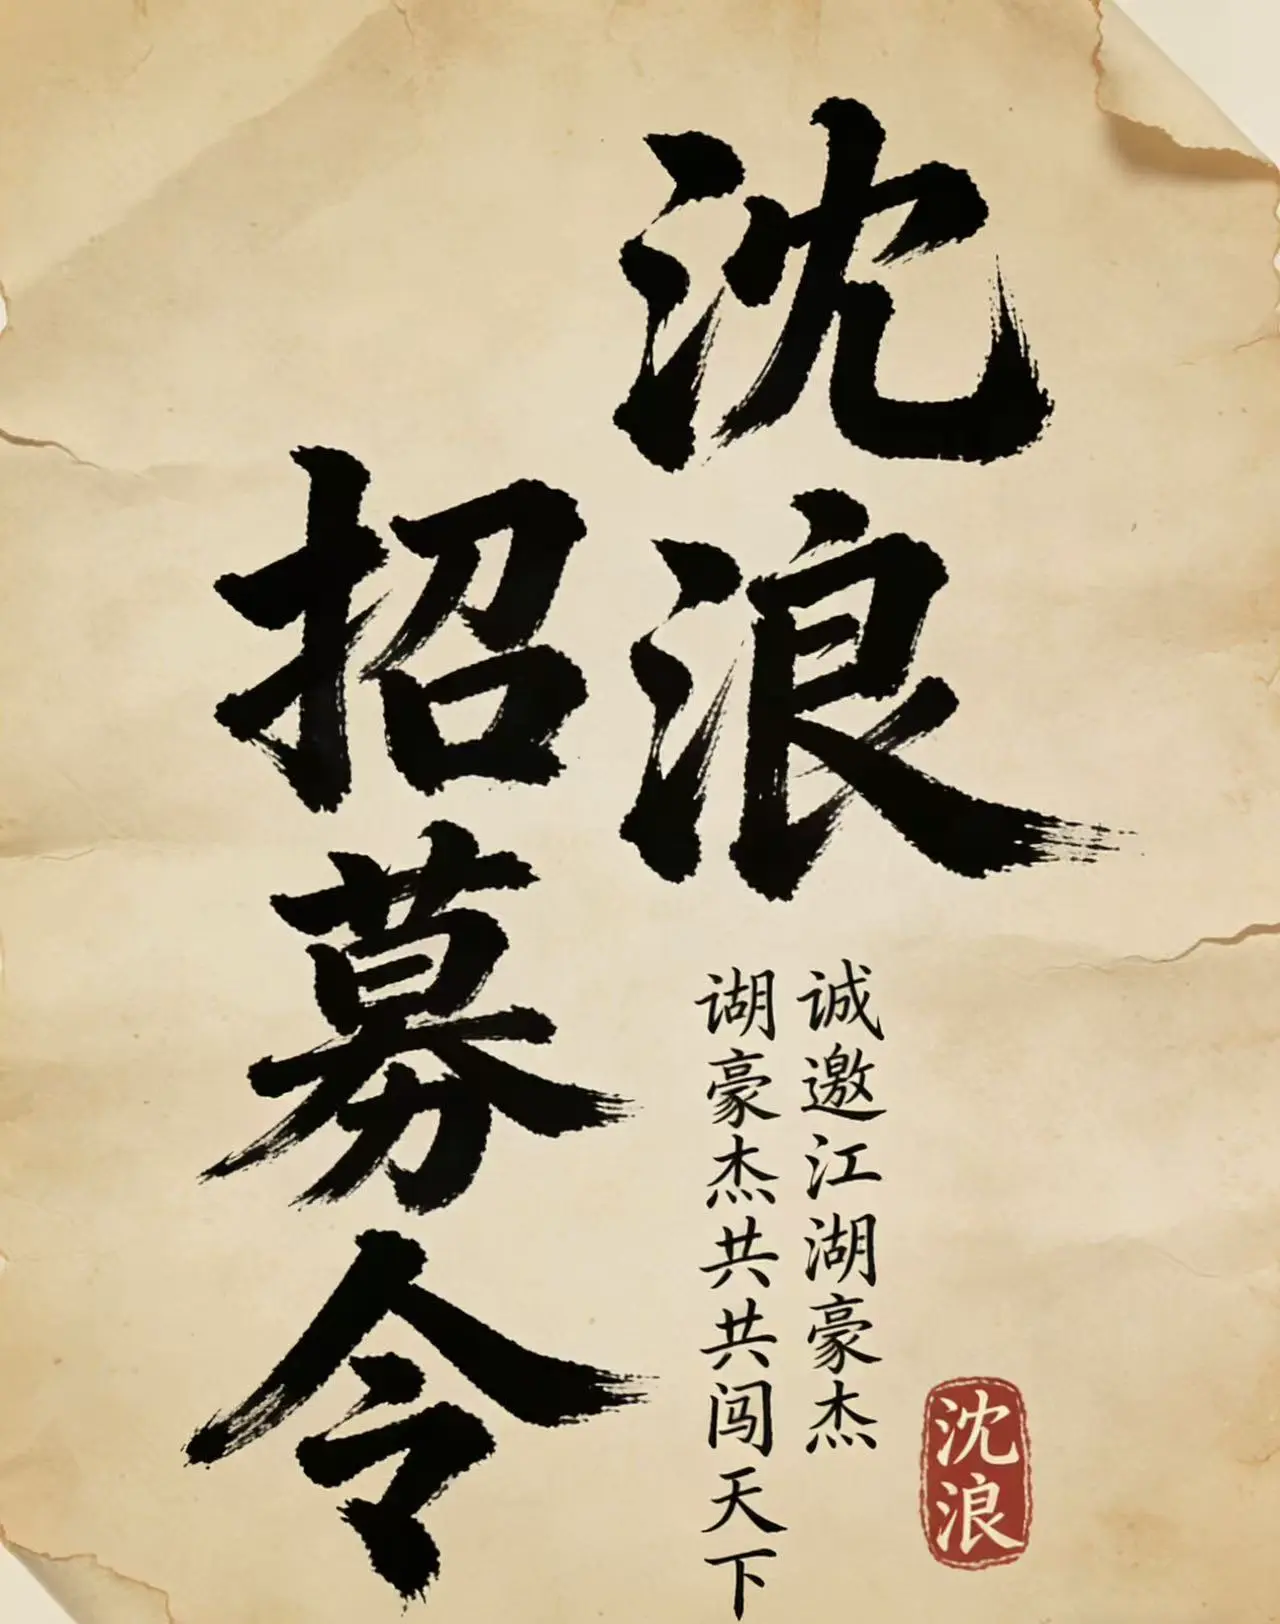 沈浪
招募令
诚邀江湖豪杰
谢豪杰共共闯天下
沈浪